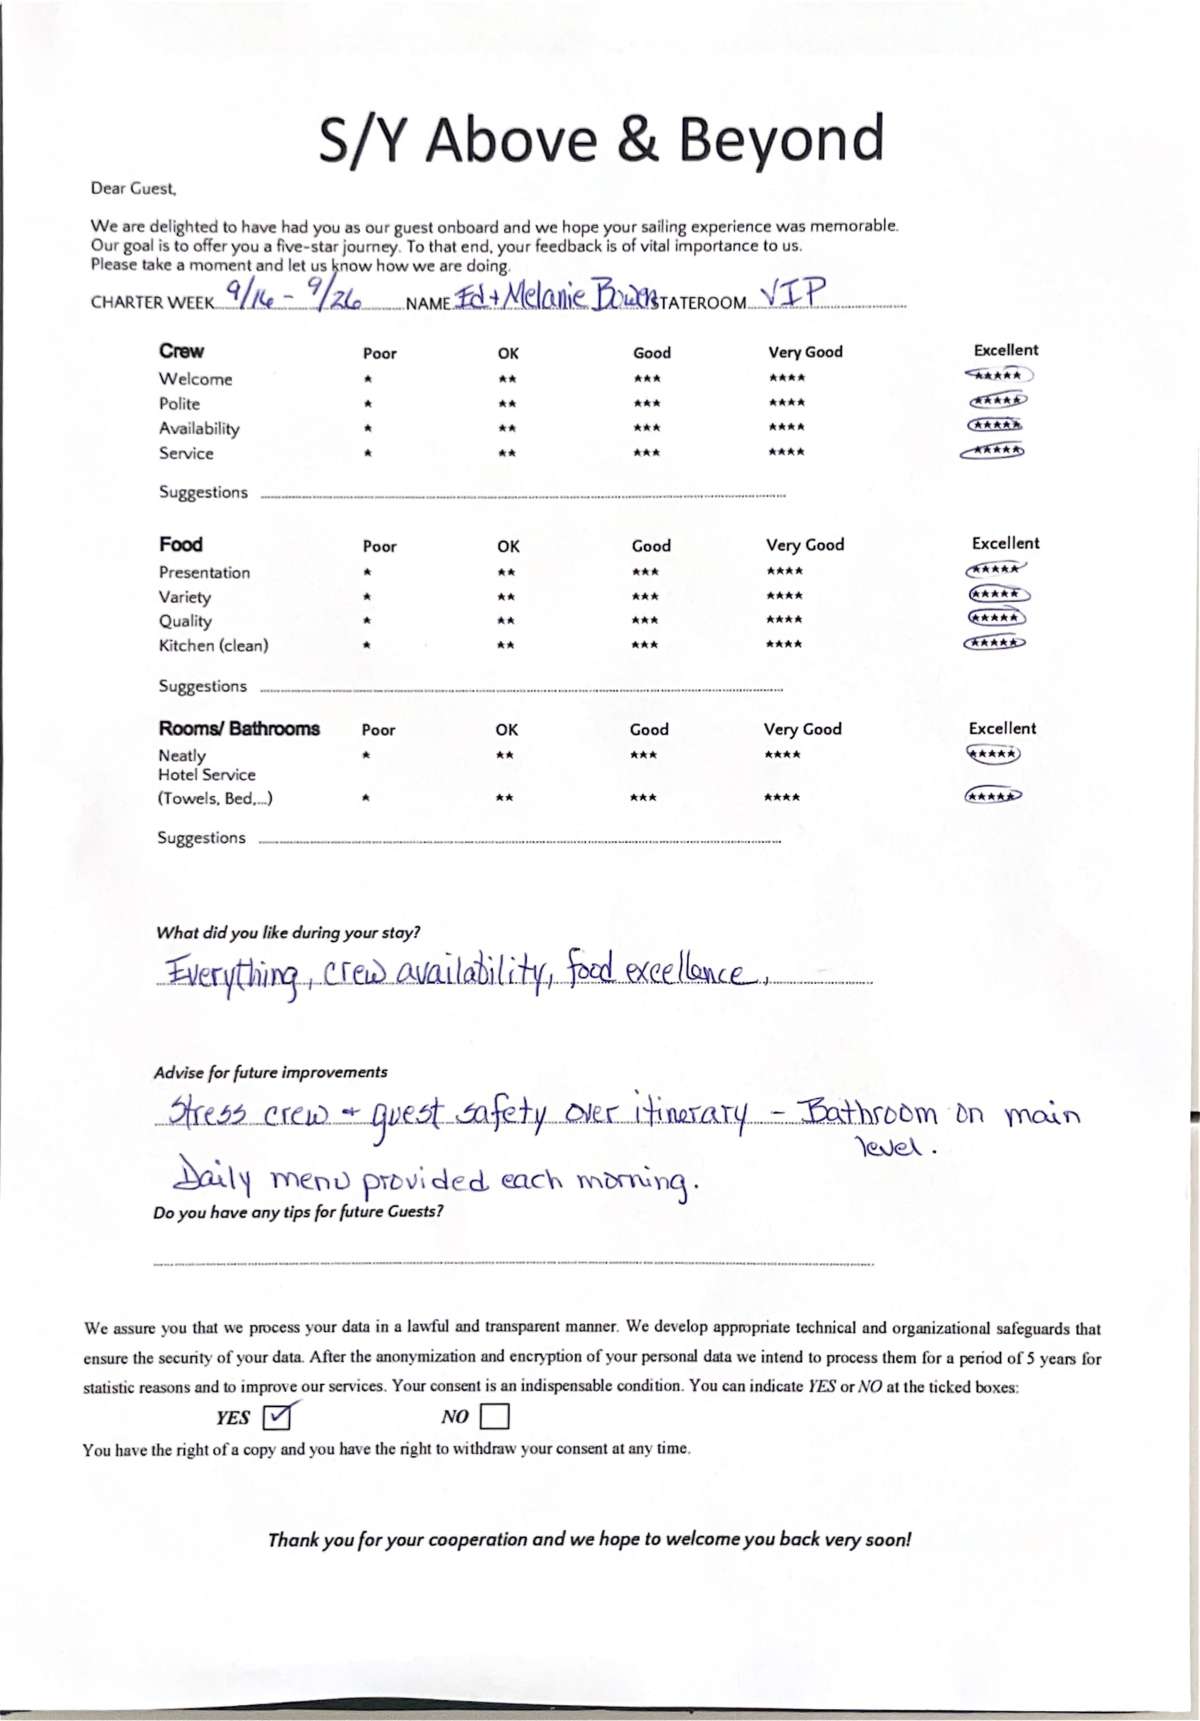 S/Y Above & Beyond
Dear Guest,
We are delighted to have had you as our guest onboard and we hope your sailing experience was memorable.
Our goal is to offer you a five-star journey. To that end, your feedback is of vital importance to us.
Please take a moment and let us know how we are doing.
CHARTER WEEK 9/16 - 9/26 NAME Ed + Melanie Bowen STATEROOM VIP
Crew Poor OK Good Very Good Excellent
Welcome * ** *** **** *****
Polite * ** *** **** *****
Availability * ** *** **** *****
Service * ** *** **** *****
Suggestions
Food Poor OK Good Very Good Excellent
Presentation * ** *** **** *****
Variety * ** *** **** *****
Quality * ** *** **** *****
Kitchen (clean) * ** *** **** *****
Suggestions
Rooms/ Bathrooms Poor OK Good Very Good Excellent
Neatly * ** *** **** *****
Hotel Service
(Towels, Bed,...) * ** *** **** *****
Suggestions
What did you like during your stay?
Everything, crew availability, food excellence,
Advise for future improvements
Stress crew + guest safety over itinerary - Bathroom on main
level.
Daily menu provided each morning.
Do you have any tips for future Guests?
We assure you that we process your data in a lawful and transparent manner. We develop appropriate technical and organizational safeguards that
ensure the security of your data. After the anonymization and encryption of your personal data we intend to process them for a period of 5 years for
statistic reasons and to improve our services. Your consent is an indispensable condition. You can indicate YES or NO at the ticked boxes:
YES ☑ NO ☐
You have the right of a copy and you have the right to withdraw your consent at any time.
Thank you for your cooperation and we hope to welcome you back very soon!